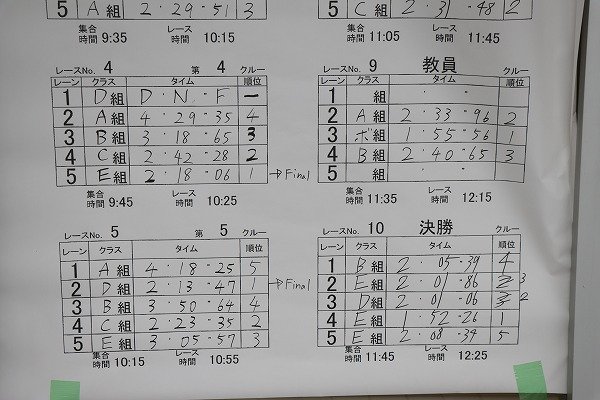 5 A組 2・29・51 3
集合時間 9:35 レース時間 10:15
レースNo. 4 第 4 クルー
レーン クラス タイム 順位
1 D組 D・N・F ー
2 A組 4・29・35 4
3 B組 3・18・65 3
4 C組 2・42・28 2
5 E組 2・18・06 1 →Final
集合時間 9:45 レース時間 10:25
レースNo. 5 第 5 クルー
レーン クラス タイム 順位
1 A組 4・18・25 5
2 D組 2・13・47 1 →Final
3 B組 3・50・64 4
4 C組 2・23・35 2
5 E組 3・05・57 3
集合時間 10:15 レース時間 10:55
5 C組 2・31・48 2
集合時間 11:05 レース時間 11:45
レースNo. 9 教員 クルー
レーン クラス タイム 順位
1 組 ・ ・
2 A組 2・33・96 2
3 ボ組 1・55・56 1
4 B組 2・40・65 3
5 組
集合時間 11:35 レース時間 12:15
レースNo. 10 決勝 クルー
レーン クラス タイム 順位
1 B組 2・05・39 4
2 E組 2・01・86 3
3 D組 2・01・06 2
4 E組 1・52・26 1
5 E組 2・08・39 5
集合時間 11:45 レース時間 12:25